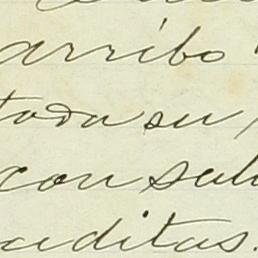 arribo
toda su
con salu
aditas.